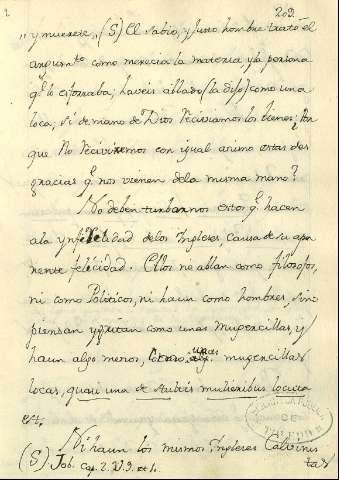 203.
„y muerete„ (S) El sabio, y Justo hombre trató el
argumto. como merecia la materia, y la persona
qe. lo esforzaba; haveis ablado (la dijo) como una
loca, si de mano de Dios Reciviamos los bienes, Por
que No Reciviremos con igual animo estas des
gracias qe. nos vienen dela misma mano?
No deben turbarnos estos qe. hacen
ala ynfelicidad delos Ingleses, causa de su apa
rente felicidad. Ellos no ablan como filosofos,
ni como Politicos, ni haun como hombres, sino
piensan y gritan como unas mugercillas, y
haun algo menos, como unas mugercillas
locas, quasi una de stultis mulieribus locuta
est.
Ni haun los mismos Ingleses Calvinis
tas
(S) Job. Cap. 2. V. 9. et 10.